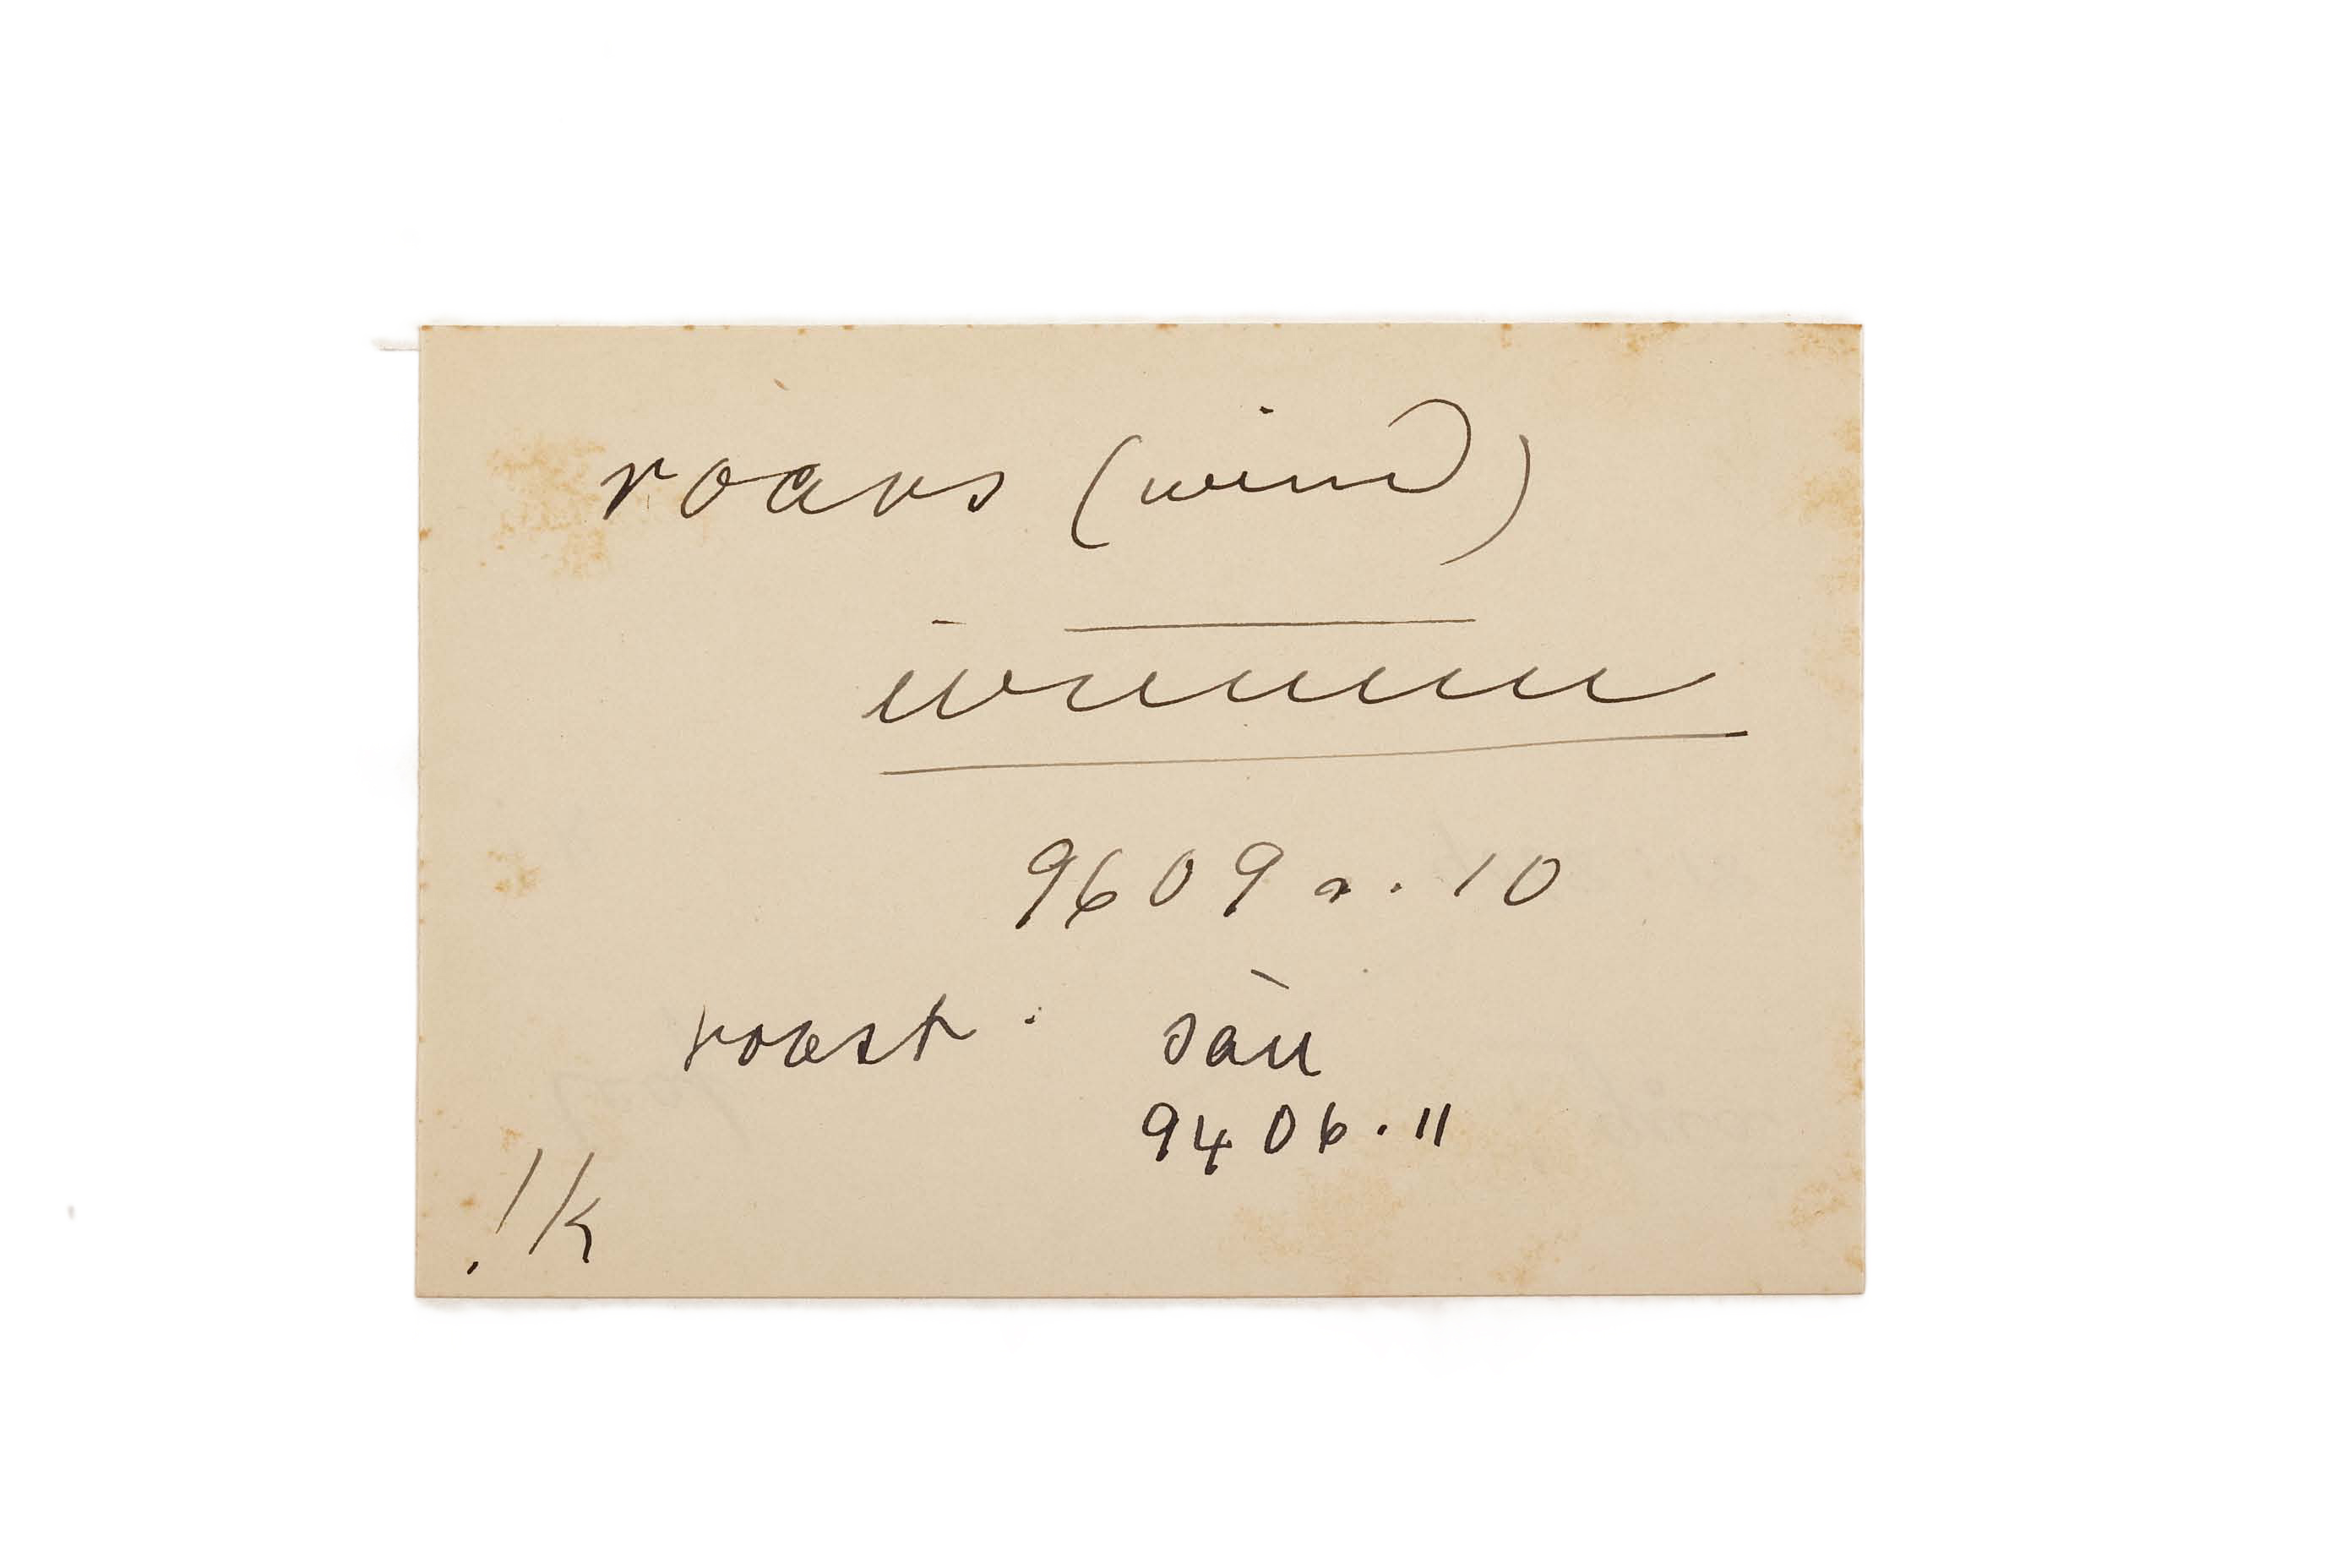 roars (wind)
9609 a. 10
roast: sàu
9406.11
!k